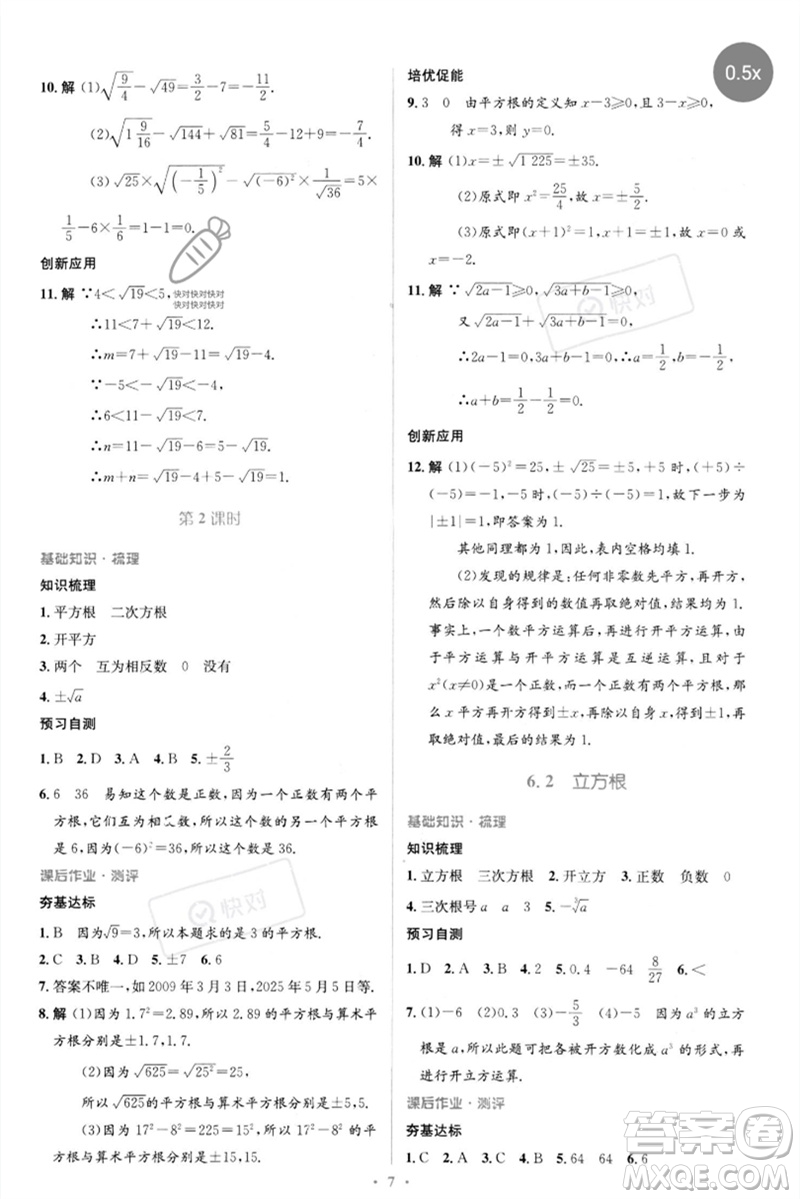 10. 解 (1)√(9/4)－√49＝3/2－7＝－11/2.
(2)√(1 9/16)－√144＋√81＝5/4－12＋9＝－7/4.
(3)√25×√((－1/5)²)－√((－6)²)×1/√36＝5×
1/5－6×1/6＝1－1＝0.
创新应用
11. 解 ∵4＜√19＜5,
快对快对快对
快对快对快对
∴11＜7＋√19＜12.
∴m＝7＋√19－11＝√19－4.
∵－5＜－√19＜－4,
∴6＜11－√19＜7.
∴n＝11－√19－6＝5－√19.
∴m＋n＝√19－4＋5－√19＝1.
第 2 课时
基础知识·梳理
知识梳理
1. 平方根 二次方根
2. 开平方
3. 两个 互为相反数 0 没有
4. ±√a
预习自测
1. B 2. D 3. A 4. B 5. ±2/3
6. 6 36 易知这个数是正数,因为一个正数有两个平
方根,它们互为相反数,所以这个数的另一个平方根
是 6,因为(－6)²＝36,所以这个数是 36.
课后作业·测评
夯基达标
1. B 因为√9＝3,所以本题求的是 3 的平方根.
2. C 3. B 4. D 5. ±7 6. 6
7. 答案不唯一,如 2009 年 3 月 3 日,2025 年 5 月 5 日等.
8. 解 (1)因为 1.7²＝2.89,所以 2.89 的平方根与算术平
方根分别是±1.7,1.7.
(2)因为√625＝√25²＝25,
所以√625的平方根与算术平方根分别是±5,5.
(3)因为 17²－8²＝225＝15²,所以 17²－8² 的平方
根与算术平方根分别是±15,15.
培优促能
9. 3 0 由平方根的定义知 x－3≥0,且 3－x≥0,
得 x＝3,则 y＝0.
10. 解 (1)x＝±√1 225＝±35.
(2)原式即 x²＝25/4,故 x＝±5/2.
(3)原式即(x＋1)²＝1,两边开平方得 x＝0 或 x
＝－2.
11. 解 ∵√(2a－1)≥0,√(3a＋b－1)≥0,
又√(2a－1)＋√(3a＋b－1)＝0,
∴2a－1＝0,3a＋b－1＝0.∴a＝1/2,b＝－1/2.
∴a＋b＝1/2－1/2＝0.
创新应用
12. 解 (1)(－5)²＝25,±√25＝±5,当取＋5 时,(＋5)÷
(－5)＝－1,当取－5 时,(－5)÷(－5)＝1,故最后为
|±1|＝1,即答案为 1.
其他同理都为 1,因此,表内空格全部填 1.
(2)发现的规律是:任何非零数先平方,再开方,
然后除以自身得到的数值再取绝对值,最后得 1.
事实上,一个数平方运算后,再进行开平方运算,
由于平方运算与开平方运算是互逆运算,且
x²(x≠0)是一个正数,而一个正数有两个平方根,那
么 x 平方再开方得到±x,±x 除以自身得到±1,再
取绝对值,所以最后结果是 1.
6.2 立方根
基础知识·梳理
知识梳理
1. 立方根 三次方根 2. 开立方 3. 正数 负数 0
4. 三次根号 a a 3 5. －∛a
预习自测
1. D 2. A 3. B 4. A 5. 0.4 －64 8/27 6. ＜
7. (1)－6 (2)0.3 (3)－5/3 (4)－5 因为 a³ 的立方
根是 a,所以此题可把各被开方数化成 a³ 的形式,再
进行开立方运算.
课后作业·测评
夯基达标
1. C 2. A 3. C 4. D 5. 64 64 －64 6. 6
7
0.5x
快对
快对
答案圈
MXQE.COM